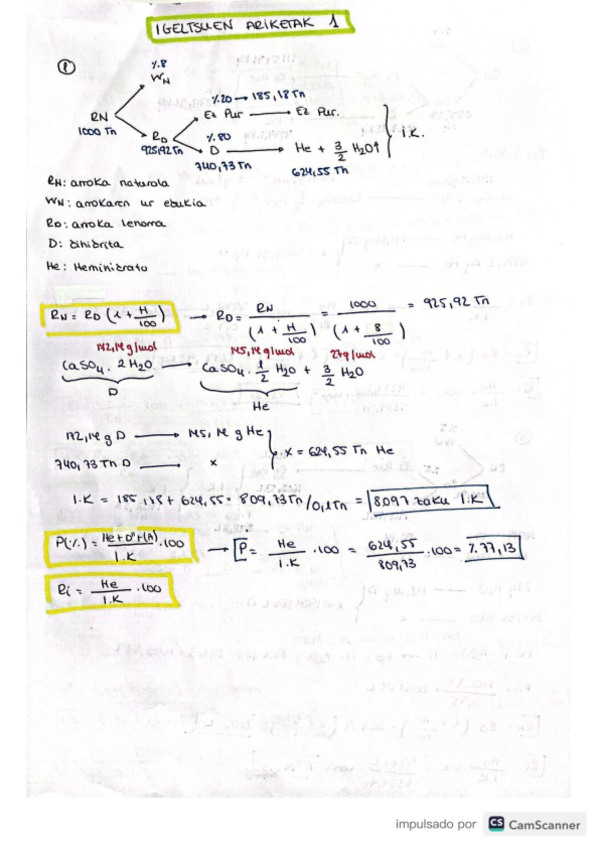 IGELTSUEN ARIKETAK 1
①
%8
WN
%20 → 185,18 Tn
Ez Pur → Ez Pur.
RN
1000 Tn
RD
925,92 Tn
%80
D → He + 3/2 H2O↑
740,73 Tn
624,55 Tn
I.K.
RN: arroka naturala
WN: arrokaren ur edukia
RD: arroka lehorra
D: dihidrita
He: Heminidrato
RN = RD (1 + H/100) → RD = RN/(1 + H/100) = 1000/(1 + 8/100) = 925,92 Tn
172,14 g/mol 145,14 g/mol 27g/mol
CaSO4 · 2H2O → CaSO4 · 1/2 H2O + 3/2 H2O
D He
172,14 g D → 145,14 g He
740,73 Tn D → x
x = 624,55 Tn He
I.K = 185,18 + 624,55 = 809,73 Tn /0,1 Tn = 8097 zaku I.K
P(%) = He + D'' + (A) / I.K · 100 → P = He/I.K · 100 = 624,55/809,73 · 100 = %77,13
Ri = He/I.K · 100
impulsado por CS CamScanner